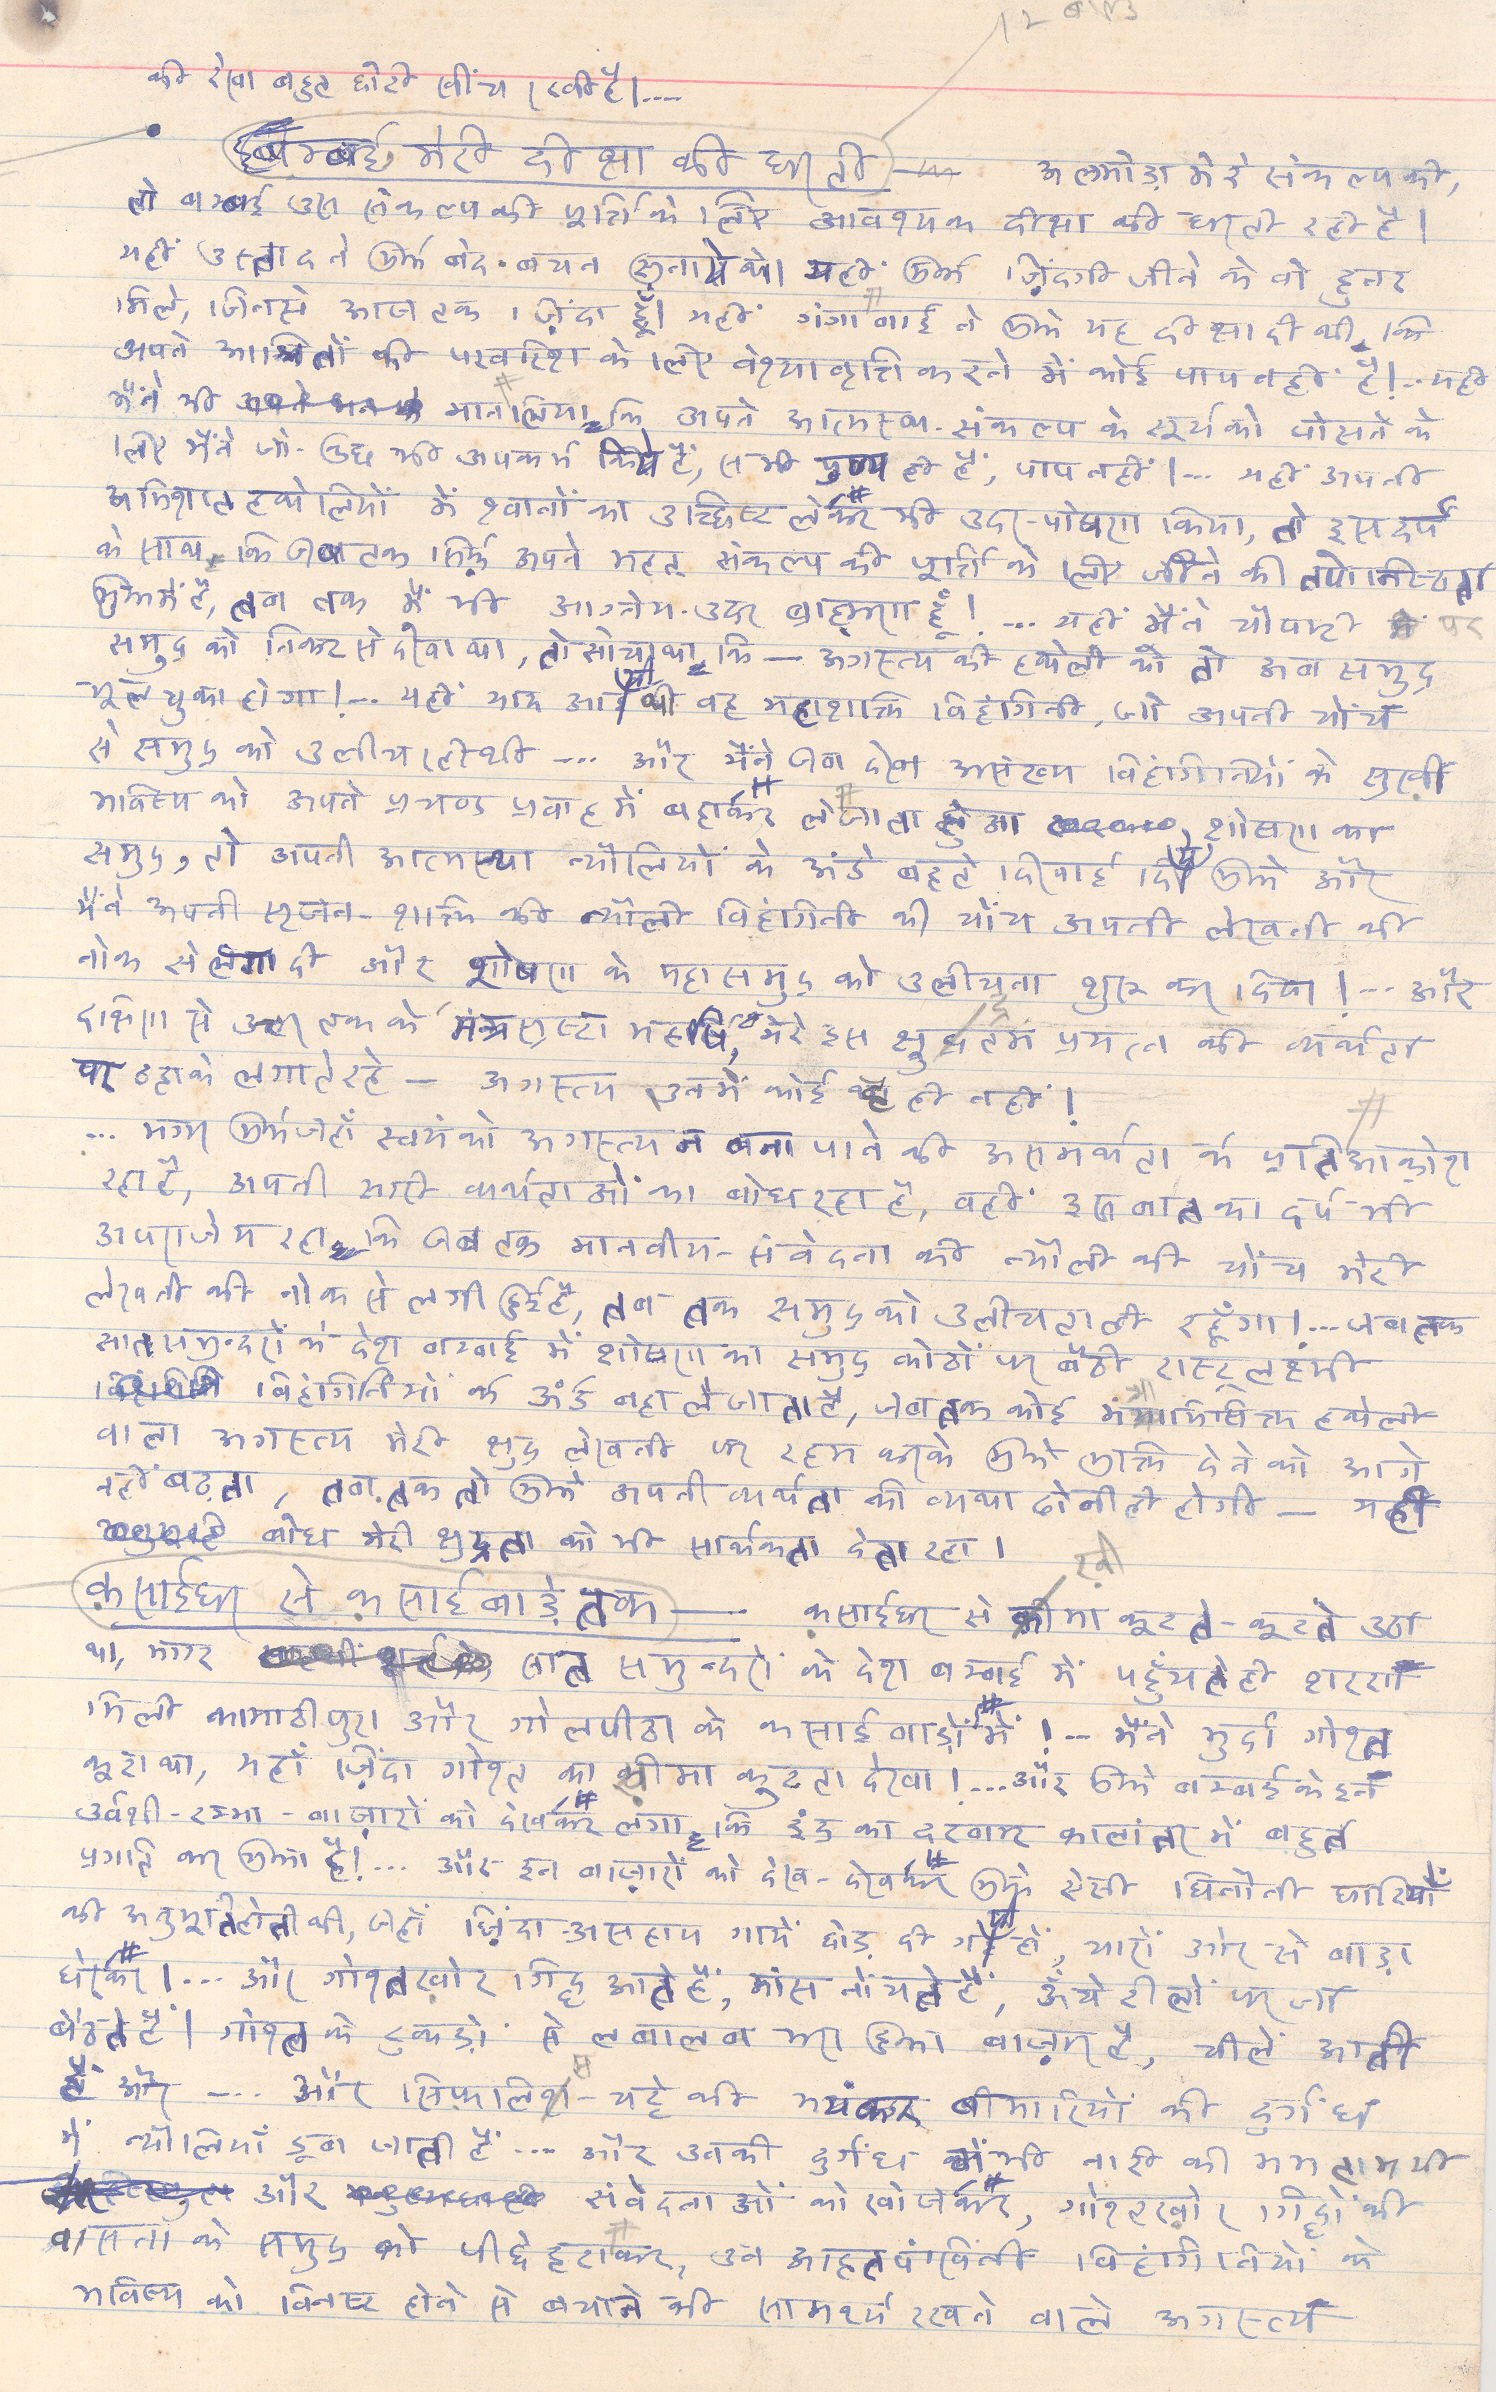 की रेखा बहुत छोटी खींच रखी है।....
बम्बई, मेरी दीक्षा की धरती — अलमोड़ा मेरे संकल्प की,
तो बम्बई उस संकल्प की पूर्त्ति के लिए आवश्यक दीक्षा की धरती रही है।
यहीं उस्ताद ने मुझे बेद-बचन सुनाये थे। यहीं मुझे ज़िंदगी जीने के वो हुनर
मिले, जिनसे आज तक ज़िंदा हूँ। यहीं गंगा बाई ने मुझे यह दीक्षा दी थी, कि
अपने आश्रितों की परवरिश के लिए वेश्यावृत्ति करने में कोई पाप नहीं है!... यहीं
मैंने भी मान लिया, कि अपने आत्मस्थ-संकल्प के सूर्य को पोसने के
लिए मैंने जो-कुछ भी अपकर्म किये हैं, सभी पुण्य ही हैं, पाप नहीं।... यहीं अपनी
अभिशप्त हथेलियों में श्वानों का उच्छिष्ट लेकर भी उदर-पोषण किया, तो इस दर्प
के साथ, कि जब तक सिर्फ़ अपने महत् संकल्प की पूर्त्ति के लिए जीने की तपोनिष्ठता
मुझमें है, तब तक मैं भी आग्नेय-उदर ब्राह्मण हूँ!... यहीं मैंने चौपाटी पर
समुद्र को निकट से देखा था, तो सोचा था, कि — अगस्त्य की हथेली को तो अब समुद्र
भूल चुका होगा!... यहीं याद आयी थी वह महाशक्ति विहंगिनी, जो अपनी चोंच
से समुद्र को उलीच रही थी .... और मैंने जब देखा असंख्य विहंगिनियों के सुखी
भविष्य को अपने प्रचण्ड प्रवाह में बहाकर ले जाता हुआ शोषण का
समुद्र, तो अपनी आत्मस्था न्यौलियों के अंडे बहते दिखाई दिये मुझे और
मैंने अपनी सृजन-शक्ति की न्यौली विहंगिनी की चोंच अपनी लेखनी की
नोक से लगा दी और शोषण के महासमुद्र को उलीचना शुरू कर दिया!... और
दक्षिण से उत्तर तक के मंत्रसृष्टा महर्षि, मेरे इस क्षुद्रतम प्रयत्न की व्यर्थता
पर ठहाके लगाते रहे — अगस्त्य उनमें कोई था ही नहीं!
... मगर मुझे जहाँ स्वयं को अगस्त्य न बना पाने की असमर्थता के प्रति आक्रोश
रहा है, अपनी सारी व्यर्थताओं का बोध रहा है, वहीं इस बात का दर्प भी
अपराजेय रहा, कि जब तक मानवीय-संवेदना की न्यौली की चोंच मेरी
लेखनी की नोक से लगी हुई है, तब तक समुद्र को उलीचता ही रहूँगा!... जब तक
सात समुन्दरों के देश बम्बई में शोषण का समुद्र कोठों पर बैठी राष्ट्रलक्ष्मी
विहंगिनियों के अंडे बहा ले जाता है, जब तक कोई मंत्राभिषिक्त हथेली
वाला अगस्त्य मेरी क्षुद्र लेखनी पर रहम करके मुझे मुक्ति देने को आगे
नहीं बढ़ता, तब तक तो मुझे अपनी व्यर्थता की व्यथा ढोनी ही होगी — यही
बोध मेरी क्षुद्रता को भी सार्थकता देता रहा।
क़साईघर से क़साईबाड़े तक — क़साईघर से खीमा कूटते-कूटते उठा
था, मगर सात समुन्दरों के देश बम्बई में पहुँचते ही शरण
मिली कामाठीपुरा और गोलपीठा के कसाईबाड़ों में!... मैंने मुर्दा गोश्त
कूटा था, यहाँ ज़िंदा गोश्त का खीमा कुटता देखा!... और मुझे बम्बई के इन
उर्वशी-रम्भा-बाज़ारों को देखकर लगा, कि इंद्र का दरबार कालांतर में बहुत
प्रगति कर चुका है!... और इन बाज़ारों को देख-देखकर मुझे ऐसी घिनौनी घाटियों
की अनुभूति होती थी, जहाँ ज़िंदा-असहाय गायें छोड़ दी गयी हों, चारों ओर से बाड़ा
घेरकर!... और गोश्तखोर गिद्ध आते हैं, मांस नोंचते हैं, ऊँचे टीलों पर जा
बैठते हैं। गोश्त के टुकड़ों से लबालब भरा हुआ बाज़ार है, चीलें आती
हैं और .... और सिफ़लिस-चट्टे की भयंकर बीमारियों की दुर्गंध
में न्यौलियाँ डूब जाती हैं .... और उनकी दुर्गंध में भी नारी की ममतामयी
और संवेदनाओं को खोजकर, गोश्तखोर गिद्धों की
वासना के समुद्र को पीछे हटाकर, उन आहतपंखिनी विहंगिनियों के
भविष्य को विनष्ट होने से बचाने की सामर्थ्य रखने वाले अगस्त्य